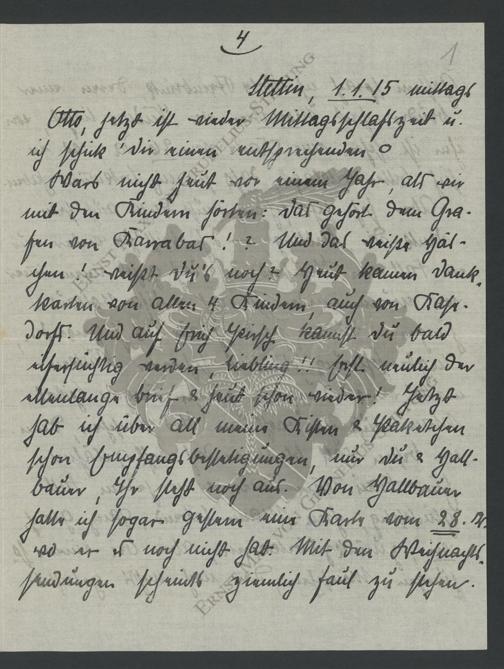 4
1
Stettin, 1.1.15 mittags
Otto, jetzt ist wieder Mittagsschlafszeit u.
ich schick' dir einen entsprechenden o
Wars nicht heut vor einem Jahr, als wir
mit den Kindern hörten: das gehört dem Gra-
fen von Karrabas! ? Und das weiße Häs-
chen! weißt du's noch? Heut kamen Dank-
karten von allen 4 Kindern, auch von
dorf. Und auf Erich kannst du bald
eifersüchtig werden, Liebling!! Erst neulich der
ellenlange Brief & heut schon wieder! Jetzt
hab ich über all meine Kisten & Paketchen
schon Empfangsbestetigungen, nur du & Hall-
bauer, Ihr steht noch aus. Von Hallbauer
hatte ich sogar gestern ein Karte vom 28.
wo er es noch nicht hat. Mit den Weihnachts-
sendungen scheints ziemlich faul zu stehen.
ERNST